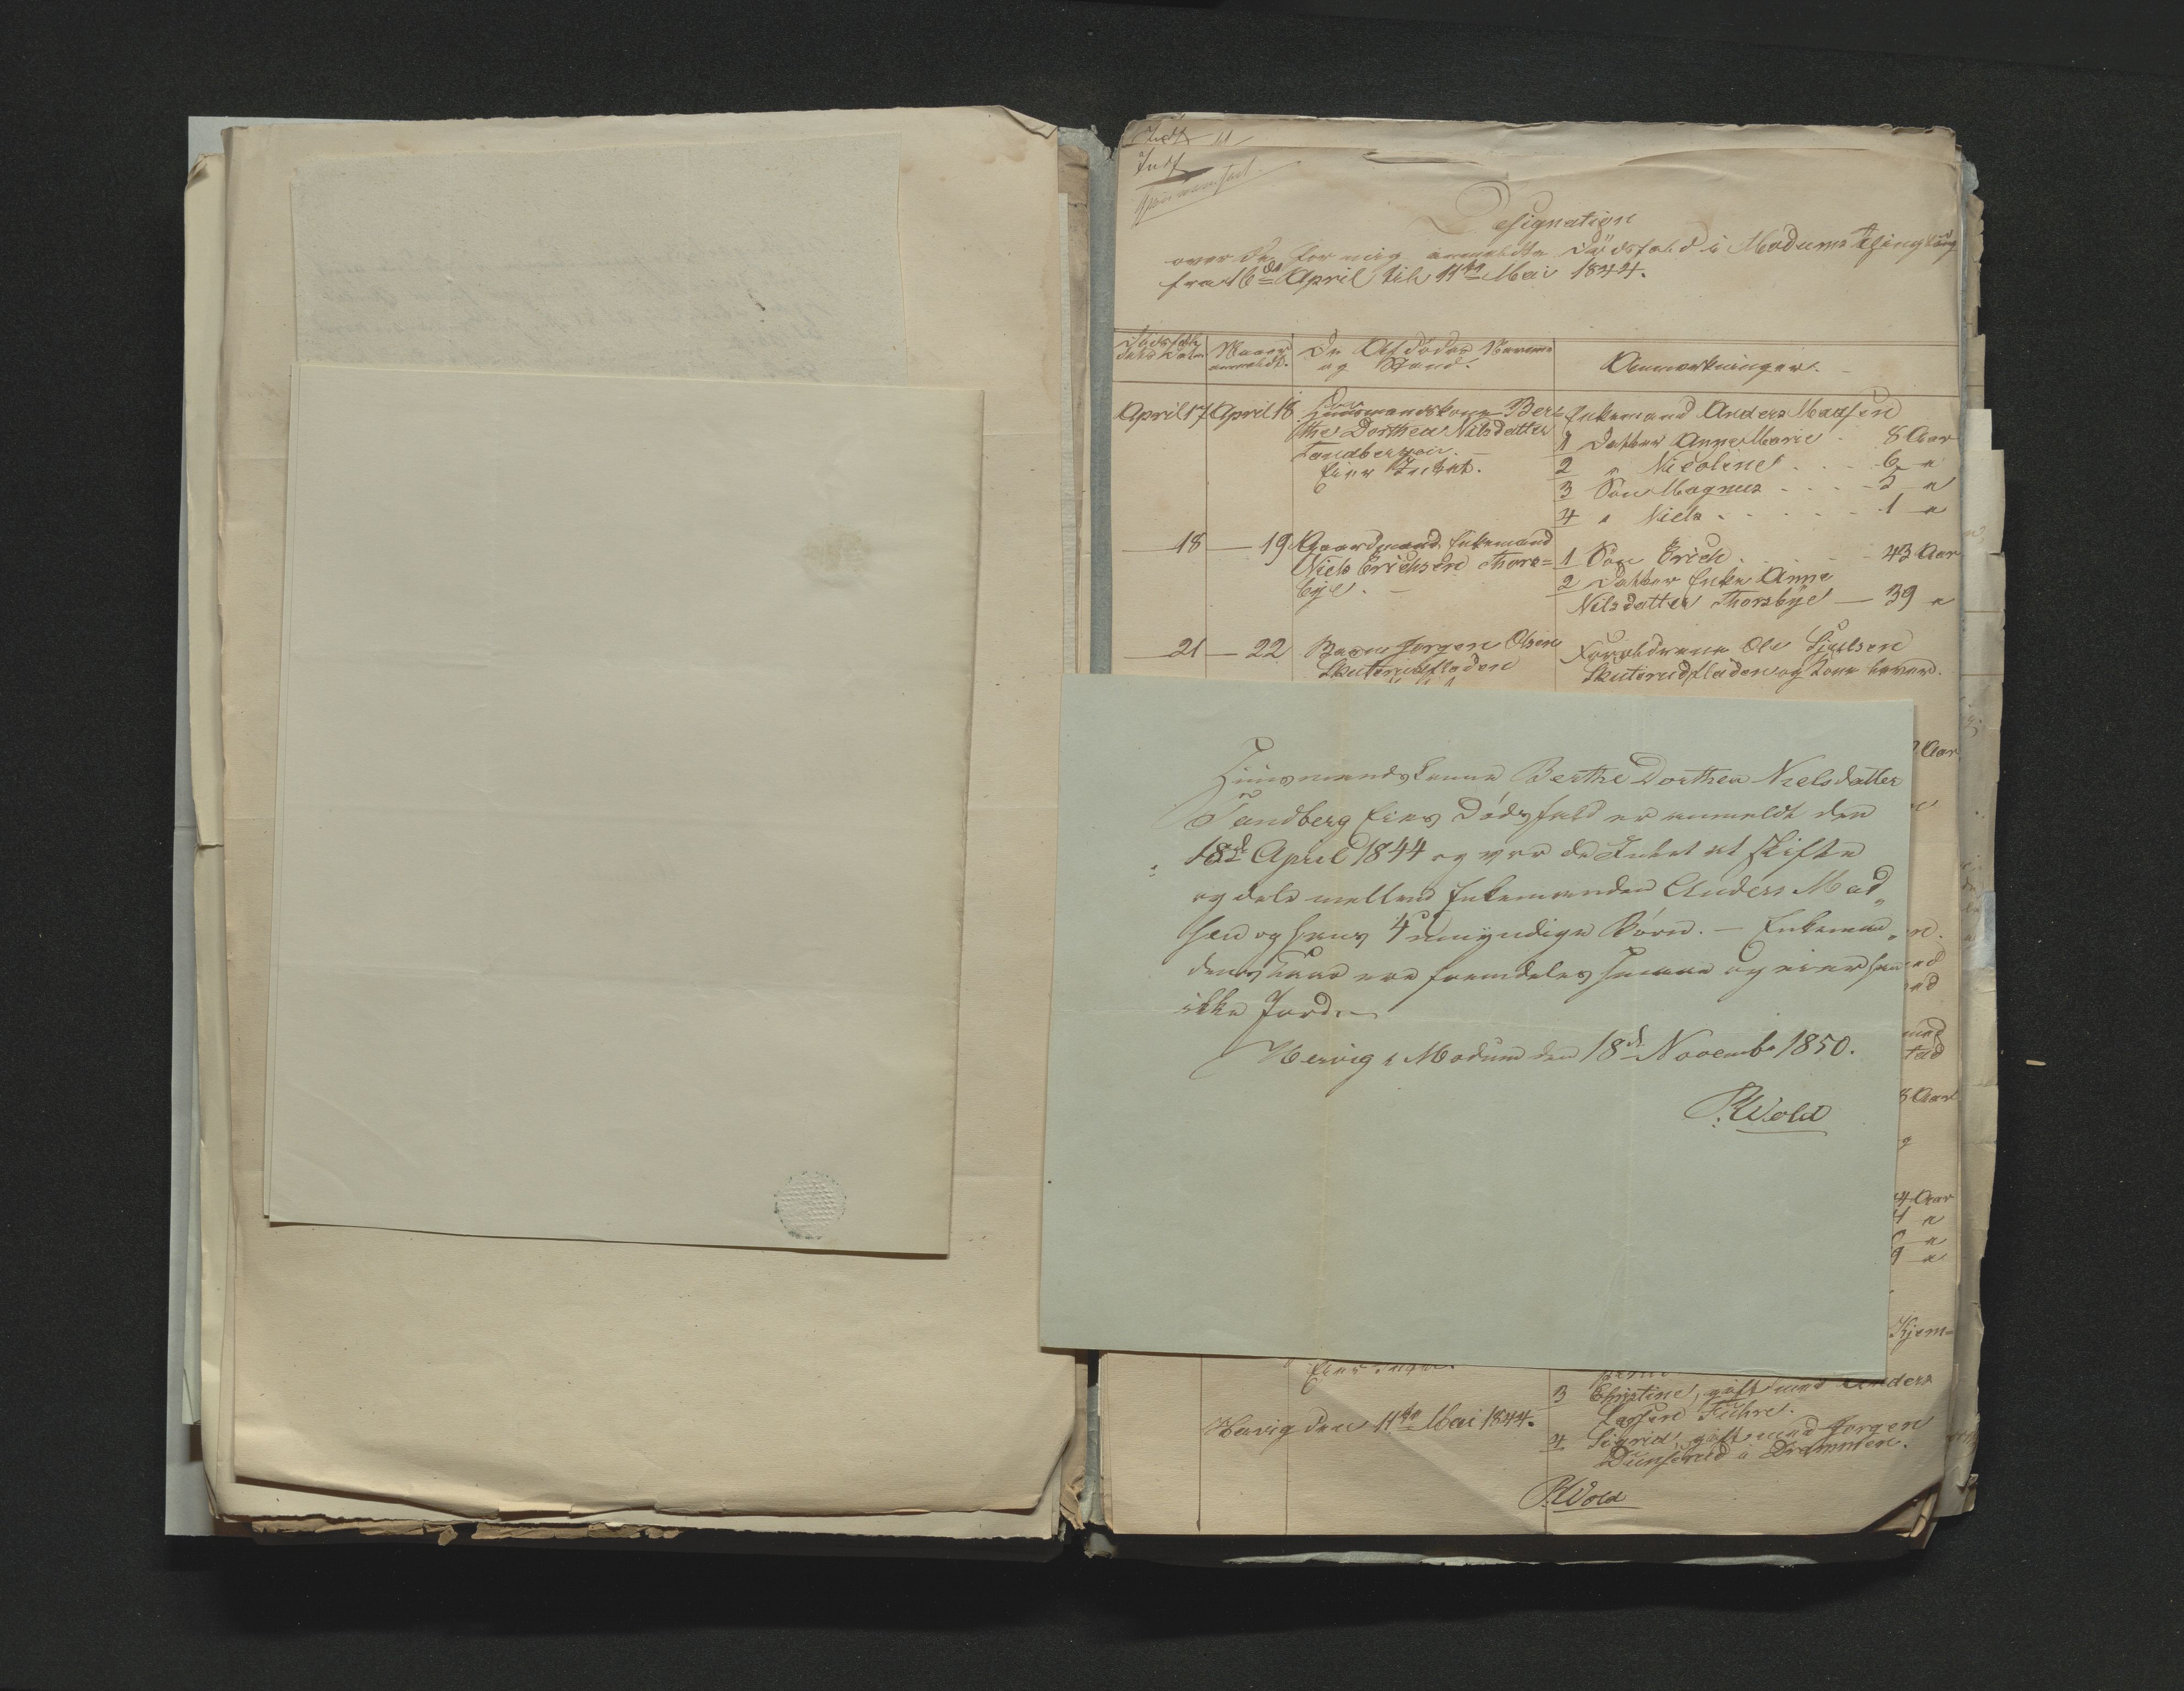 Indf 11
Indf
Designation
over de for mig anmeldte Dødsfald i Modums Thinglaug
fra 16de April til 11te Mai 1844.
Dødsfaldets Datum
Naar anmeldt.
De Afdødes Navne
og Stand.
Anmærkninger.
April 17 April 18 Huusmandskone Ber=
the Dorthea Nilsdatter
Tandbergeie.
Eier Intet.
Enkemand Anders Madsen
1 Datter Anne Marie . 8 Aar
2 " Nicoline . . . 6 "
3 Søn Magnus . . . "
4 " Niels . . . . . 1 "
— 18 — 19 Gaardmand, Enkemand
Niels Erichsen Thors=
bye. —
1 Søn Erich . . . 43 Aar
2 Datter Enke Anne
Nilsdatter Thorsbye — 39 "
— 21 — 22 Barn Jørgen Olsen
Skuterudfladen
Forældrene Ole
Skuterudfladen og Kone lever.
Huusmandskonen Berthe Dorthea Nielsdatter
Tandberg Eies Dødsfald er anmeldt den
18de April 1844 og var da Intet at skifte
og dele mellem Enkemanden Anders Mad„
sen og hans 4 umyndige Børn. — Enkeman„
dens Kaar ere fremdeles smaae og eier han
ikke Jord. —
Hervig i Modum den 18de Novembr 1850.
P. Wold
Aar
Aar
4 Aar
4 "
"
9 "
Kjem=
3 Christine, gift med Anders
Larsen Fuhre.
4 Sigrid, gift med Jørgen
Dunserud i Drammen.
Hervig den 11te Mai 1844.
P. Wold